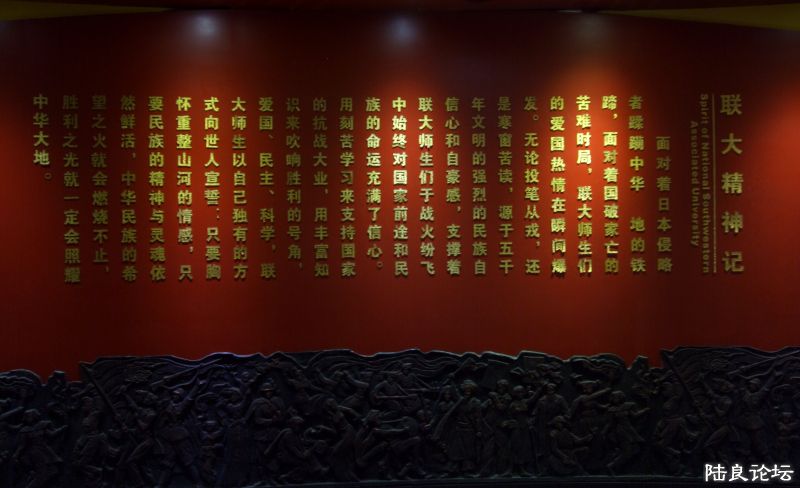 联大精神记
Spirit of National Southwestern
Associated University
面对着日本侵略
者蹂躏中华 地的铁
蹄，面对着国破家亡的
苦难时局，联大师生们
的爱国热情在瞬间爆
发。无论投笔从戎，还
是寒窗苦读，源于五千
年文明的强烈的民族自
信心和自豪感，支撑着
联大师生们于战火纷飞
中始终对国家前途和民
族的命运充满了信心。
用刻苦学习来支持国家
的抗战大业，用丰富知
识来吹响胜利的号角，
爱国、民主、科学，联
大师生以自己独有的方
式向世人宣誓：只要胸
怀重整山河的情感，只
要民族的精神与灵魂依
然鲜活，中华民族的希
望之火就会燃烧不止，
胜利之光就一定会照耀
中华大地。
陆良论坛